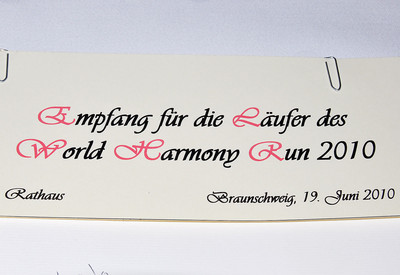 Empfang für die Läufer des
World Harmony Run 2010
Rathaus Braunschweig, 19. Juni 2010